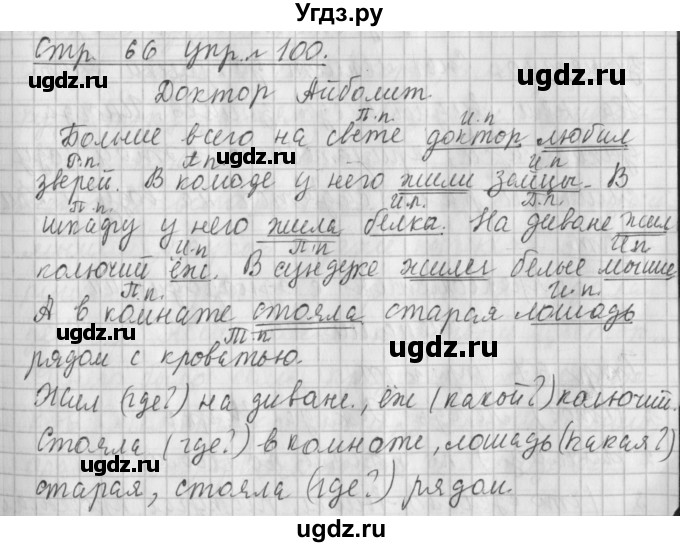 Угдз.ру
Стр. 66 упр. № 100.
ugdz.ru
ugdz.ru
Доктор Айболит.
ugdz.ru
П.п. И.п
Больше всего на свете доктор любил
ugdz.ru
И п
зверей. В комоде у него жили зайцы. В
П.п. И.п.
шкафу у него жила белка. На диване жил
И.п П.п И п
колючий ёж. В сундуке жили белые мыши
П.п. И.п.
А в комнате стояла старая лошадь
ugdz.ru
ugdz.ru
Т.п
рядом с кроватью.
Жил (где?) на диване., ёж (какой?) колючий.
Стояла (где?) в комнате, лошадь (какая?)
ugdz.ru
ugdz.ru
старая, стояла (где?) рядом.
ugdz.ru